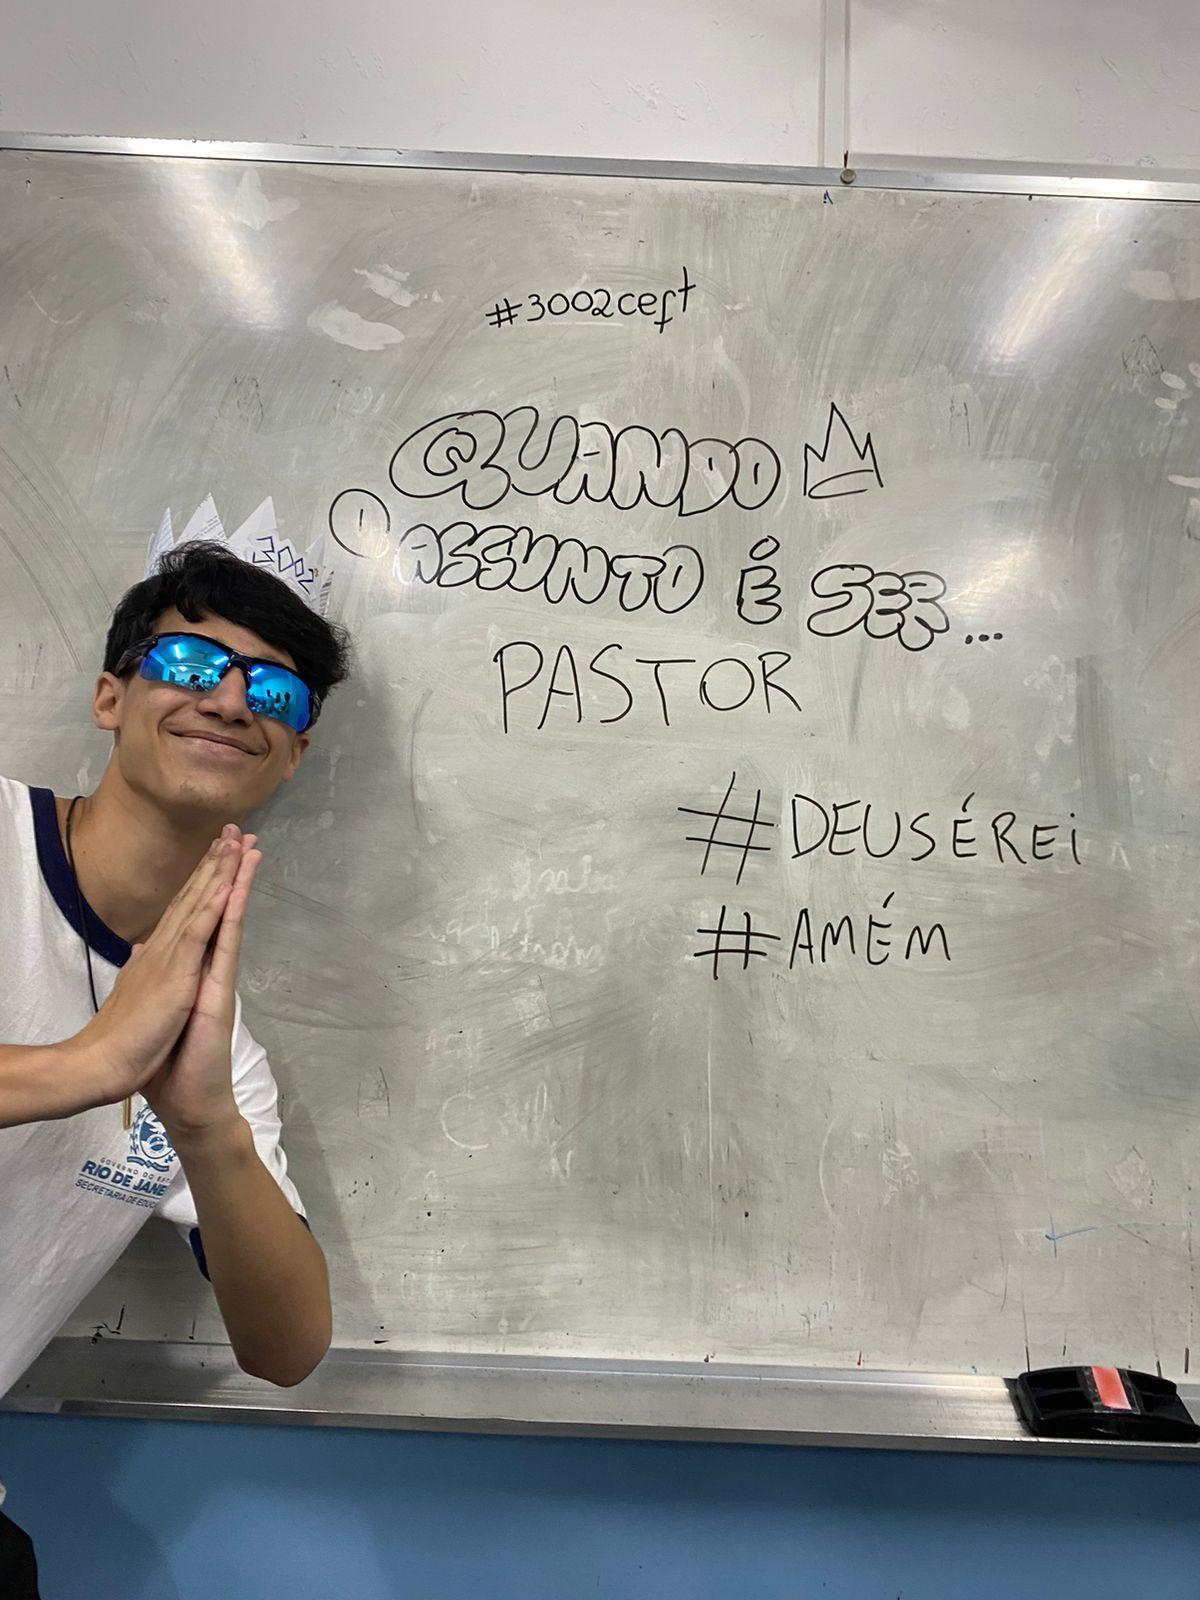 #3002ceft
QUANDO
O ASSUNTO É SER...
PASTOR
#DEUSÉREi
#AMÉM
3002
GOVERNO DO
RIO DE JANE
SECRETARIA DE EDUC